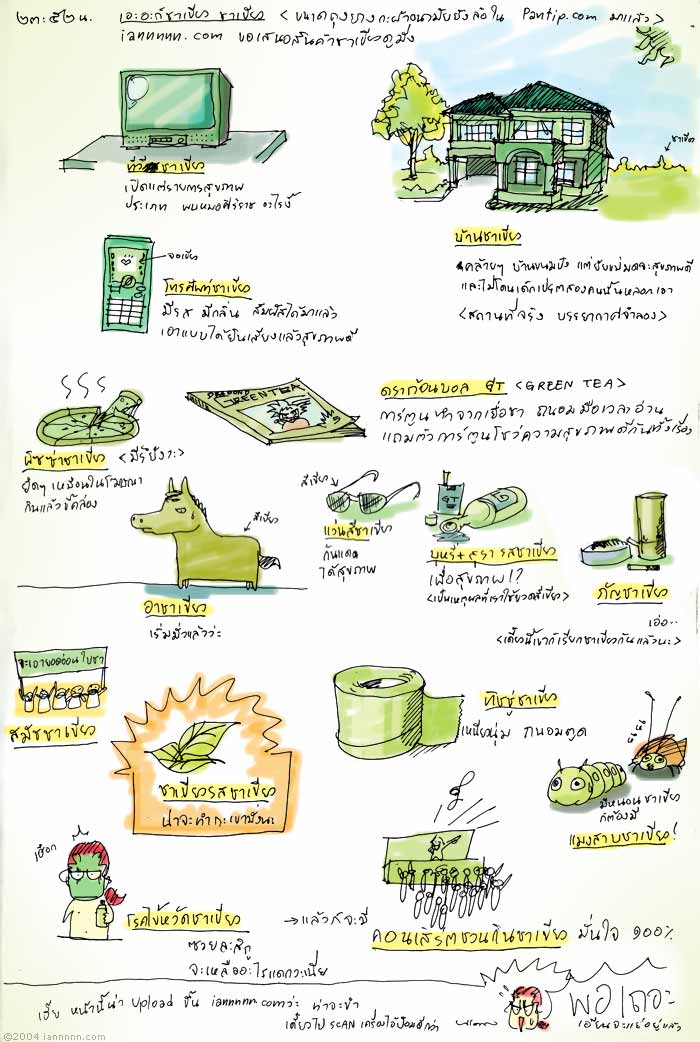 ๒๓:๕๒น. เอะอะก็ชาเขียว ชาเขียว <ขนาดถุงยางกะผ้าอนามัยยังล้อใน Pantip.com มาแล้ว>
iannnnn.com ขอเสนอสินค้าชาเขียวดูมั่ง
ทีวีชาเขียว
เปิดแต่รายการสุขภาพ
ประเภท พบหมอศิริราช อะไรงี้
ชาเขียว
บ้านชาเขียว
คล้ายๆ บ้านขนมปัง แต่
และไม่โดนเด็กเปรตสองคนนั้นหลอกเอา
<สถานที่จริง บรรยากาศจำลอง>
จอเขียว
โทรศัพท์ชาเขียว
มีรส มีกลิ่น สัมผัสได้มาแล้ว
เอาแบบได้ยินเสียงแล้วสุขภาพดี
GREEN TEA
ดราก้อนบอล GT <GREEN TEA>
การ์ตูนทำจากเยื่อชา ถนอมมือเวลาอ่าน
แถมตัวการ์ตูนโชว์ความสุขภาพดีกันทั้งเรื่อง
พิซซ่าชาเขียว <มีรึยังวะ>
ยืดๆ เหมือนในโฆษณา
กินแล้วขี้คล่อง
สีเขียว
อาชาเขียว
เริ่มมั่วแล้วว่ะ
สีเขียว
แว่นสีชาเขียว
กันแดด
ได้สุขภาพ
GT
บุหรี่+สุรา รสชาเขียว
เพื่อสุขภาพ!?
<เป็นเหตุผลที่เราใช้ขวดสีเขียว>
กัญชาเขียว
เอ่อ..
<เดี๋ยวนี้เขาก็เรียกชาเขียวกันแล้วนะ>
จะเอายอดอ่อนใบชา
สมัชชาเขียว
ชาเขียวรสชาเขียว
น่าจะทำกะเขามั่งนะ
ทิชชู่ชาเขียว
เหนียวนุ่ม ถนอมตูด
มีหนอนชาเขียว
ก็ต้องมี
แมงสาบชาเขียว!
เฮือก
โรคไข้หวัดชาเขียว
ซวยละสิกู
จะเหลืออะไรแดกวะเนี่ย
→ แล้วก็จะมี
คอนเสิร์ตชวนกินชาเขียว มั่นใจ ๑๐๐%
เฮ้ย หน้านี้น่า Upload ขึ้น iannnnn.com ว่ะ น่าจะขำ
เดี๋ยวไป SCAN เครื่องไอ้ป๊อมดีกว่า
พอเถอะ
เอียนจะแย่อยู่แล้ว
©2004 iannnnn.com